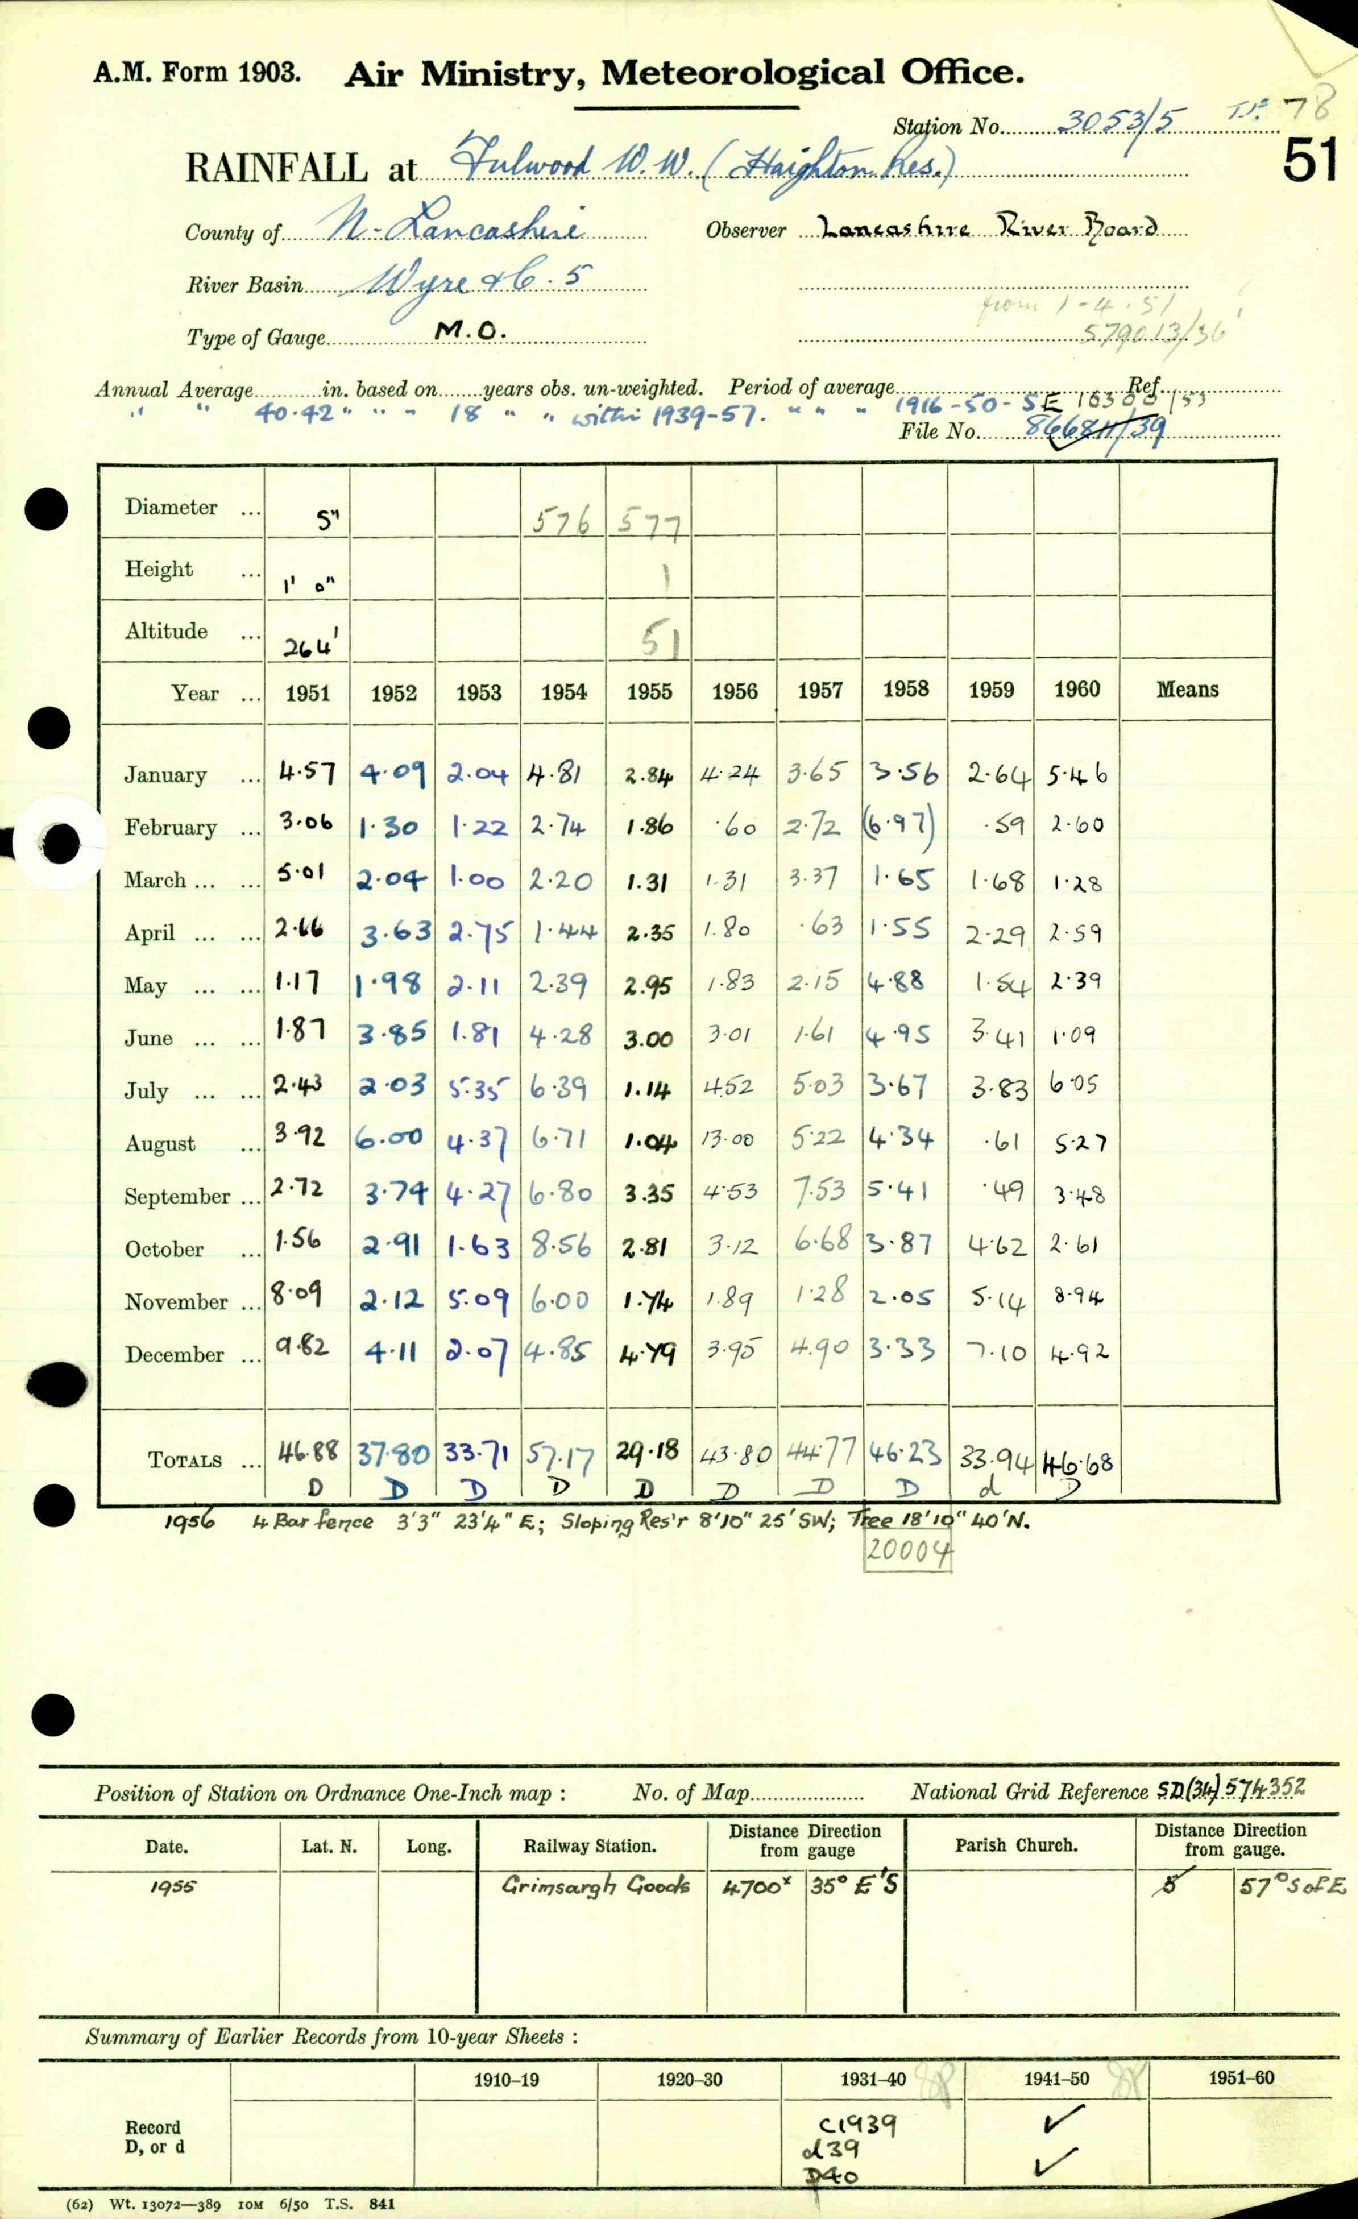 A.M. Form 1903. Air Ministry, Meteorological Office.
Station No. 3053/5 78
51
RAINFALL at Fulwood W.W. (Haighton Res.)
County of N. Lancashire Observer Lancashire River Board
River Basin Wyre &c. 5
from 1-4-51
Type of Gauge M.O. 579013/56
Annual Average in. based on years obs. un-weighted. Period of average Ref.
" " 40.42 " " " 18 " " within 1939-57. " " " 1916-50-SE 16300/53
File No. 866811/39
Diameter ... 5" 576 577
Height ... 1' 0" 1
Altitude ... 264' 51
Year ... 1951 1952 1953 1954 1955 1956 1957 1958 1959 1960 Means
January ... 4.57 4.09 2.04 4.81 2.84 4.24 3.65 3.56 2.64 5.46
February ... 3.06 1.30 1.22 2.74 1.86 .60 2.72 (6.97) .59 2.60
March ... ... 5.01 2.04 1.00 2.20 1.31 1.31 3.37 1.65 1.68 1.28
April ... ... 2.66 3.63 2.75 1.44 2.35 1.80 .63 1.55 2.29 2.59
May ... ... 1.17 1.98 2.11 2.39 2.95 1.83 2.15 4.88 1.54 2.39
June ... ... 1.87 3.85 1.81 4.28 3.00 3.01 1.61 4.95 3.41 1.09
July ... ... 2.43 2.03 5.35 6.39 1.14 4.52 5.03 3.67 3.83 6.05
August ... 3.92 6.00 4.37 6.71 1.04 13.00 5.22 4.34 .61 5.27
September ... 2.72 3.74 4.27 6.80 3.35 4.53 7.53 5.41 .49 3.48
October ... 1.56 2.91 1.63 8.56 2.81 3.12 6.68 3.87 4.62 2.61
November ... 8.09 2.12 5.09 6.00 1.74 1.89 1.28 2.05 5.14 8.94
December ... 9.82 4.11 2.07 4.85 4.79 3.95 4.90 3.33 7.10 4.92
TOTALS ... 46.88 37.80 33.71 57.17 29.18 43.80 44.77 46.23 33.94 46.68
D D D D D D D D d D
1956 4 Bar fence 3'3" 23'4" E; Sloping Res'r 8'10" 25' SW; Tree 18'10" 40'N.
20004
Position of Station on Ordnance One-Inch map : No. of Map National Grid Reference SD(34) 574352
Date. Lat. N. Long. Railway Station. Distance Direction from gauge Parish Church. Distance Direction from gauge.
1955 Grimsargh Goods 4700x 35° E'S 5 57° S of E
Summary of Earlier Records from 10-year Sheets :
1910–19 1920–30 1931–40 1941–50 1951–60
Record C1939 ✓
D, or d d39
D40 ✓
(62) Wt. 13072—389 10M 6/50 T.S. 841